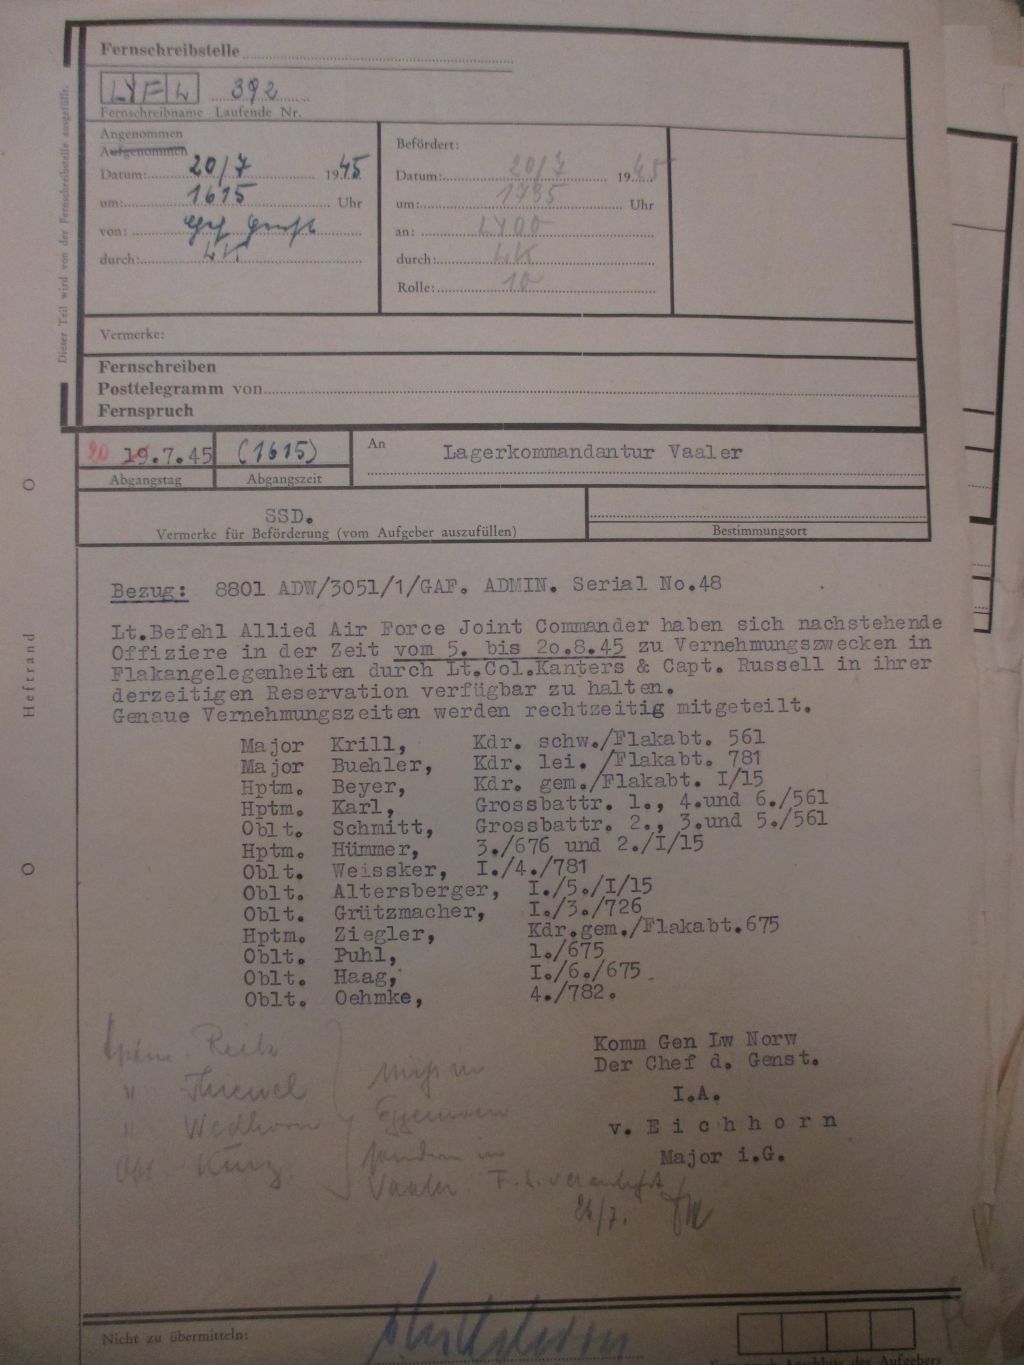 Fernschreibstelle
LYFL 392
Fernschreibname Laufende Nr.
Dieser Teil wird von der Fernschreibstelle ausgefüllt.
Angenommen
Aufgenommen
Datum: 20/7 1945
um: 1615 Uhr
von:
durch: LK
Befördert:
Datum: 20/7 1945
um: 1735 Uhr
an: LYOO
durch: LK
Rolle: 10
Vermerke:
Fernschreiben
Posttelegramm von
Fernspruch
20 19.7.45
Abgangstag
(1615)
Abgangszeit
An Lagerkommandantur Vaaler
SSD.
Vermerke für Beförderung (vom Aufgeber auszufüllen)
Bestimmungsort
Heftrand
Bezug: 8801 ADW/3051/1/GAF. ADMIN. Serial No.48
Lt.Befehl Allied Air Force Joint Commander haben sich nachstehende
Offiziere in der Zeit vom 5. bis 2o.8.45 zu Vernehmungszwecken in
Flakangelegenheiten durch Lt.Col.Kanters & Capt. Russell in ihrer
derzeitigen Reservation verfügbar zu halten.
Genaue Vernehmungszeiten werden rechtzeitig mitgeteilt.
Major Krill, Kdr. schw./Flakabt. 561
Major Buehler, Kdr. lei. /Flakabt. 781
Hptm. Beyer, Kdr. gem./Flakabt. I/15
Hptm. Karl, Grossbattr. 1., 4.und 6./561
Oblt. Schmitt, Grossbattr. 2., 3.und 5./561
Hptm. Hümmer, 3./676 und 2./I/15
Oblt. Weissker, I./4./781
Oblt. Altersberger, I./5./I/15
Oblt. Grützmacher, I./3./726
Hptm. Ziegler, Kdr.gem./Flakabt.675
Oblt. Puhl, 1./675
Oblt. Haag, I./6./675
Oblt. Oehmke, 4./782.
Komm Gen Lw Norw
Der Chef d. Genst.
I.A.
v. E i c h h o r n
Major i.G.
Hptm. Reitz
" "
" Wedhorn
Kurz
Vaaler. F.S. veranlaßt
24/7.
Nicht zu übermitteln: